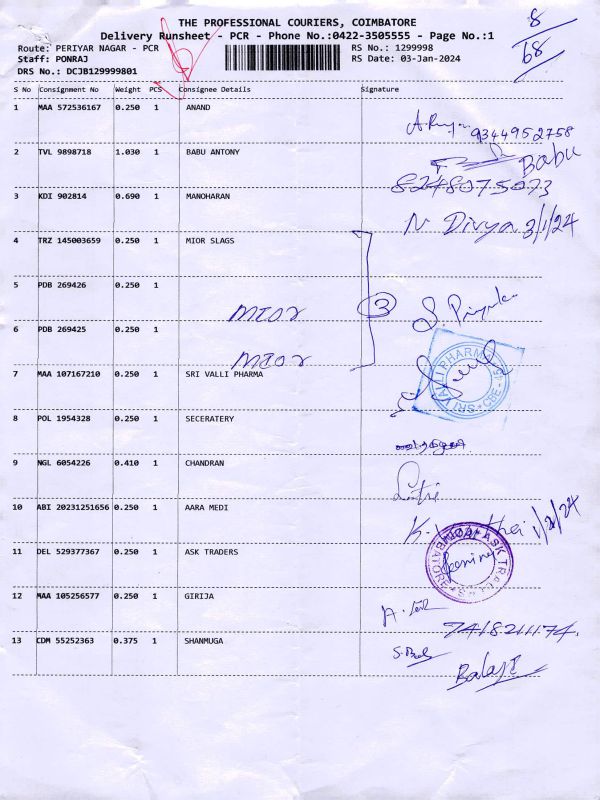 THE PROFESSIONAL COURIERS, COIMBATORE
8
Delivery Runsheet - PCR - Phone No.:0422-3505555 - Page No.:1
68
Route: PERIYAR NAGAR - PCR RS No.: 1299998
Staff: PONRAJ RS Date: 03-Jan-2024
DRS No.: DCJB129999801
S No Consignment No Weight PCS Consignee Details Signature
1 MAA 572536167 0.250 1 ANAND
9344952758
2 TVL 9898718 1.030 1 BABU ANTONY
Babu
8248075073
3 KDI 902814 0.690 1 MANOHARAN
N Divya 3/1/24
4 TRZ 145003659 0.250 1 MIOR SLAGS
5 PDB 269426 0.250 1
MIOR 3
6 PDB 269425 0.250 1
MIOR
7 MAA 107167210 0.250 1 SRI VALLI PHARMA
SRI VALLI PHARMA CBE
8 POL 1954328 0.250 1 SECERATERY
9 NGL 6054226 0.410 1 CHANDRAN
10 ABI 20231251656 0.250 1 AARA MEDI
11 DEL 529377367 0.250 1 ASK TRADERS
12 MAA 105256577 0.250 1 GIRIJA
7418211174.
13 CDM 55252363 0.375 1 SHANMUGA
Balaji